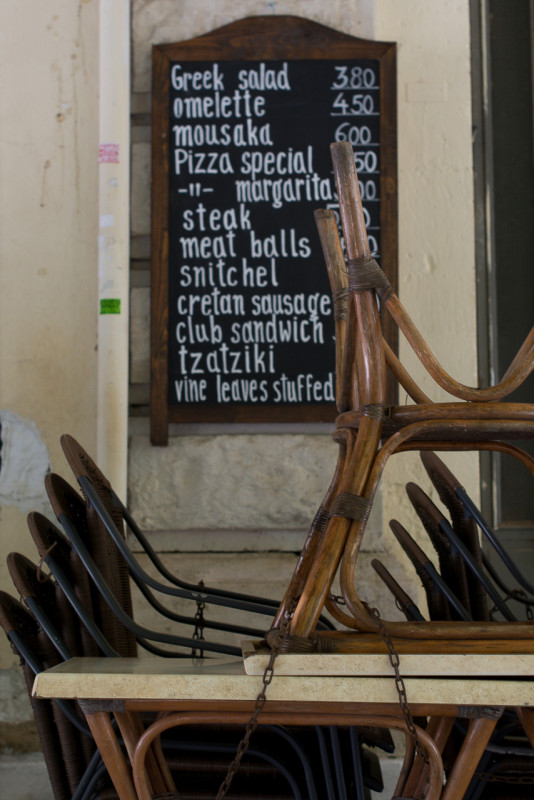 Greek salad 380
omelette 450
mousaka 600
Pizza special 50
-"- margarita
steak
meat balls
snitchel
cretan sausage
club sandwich
tzatziki
vine leaves stuffed